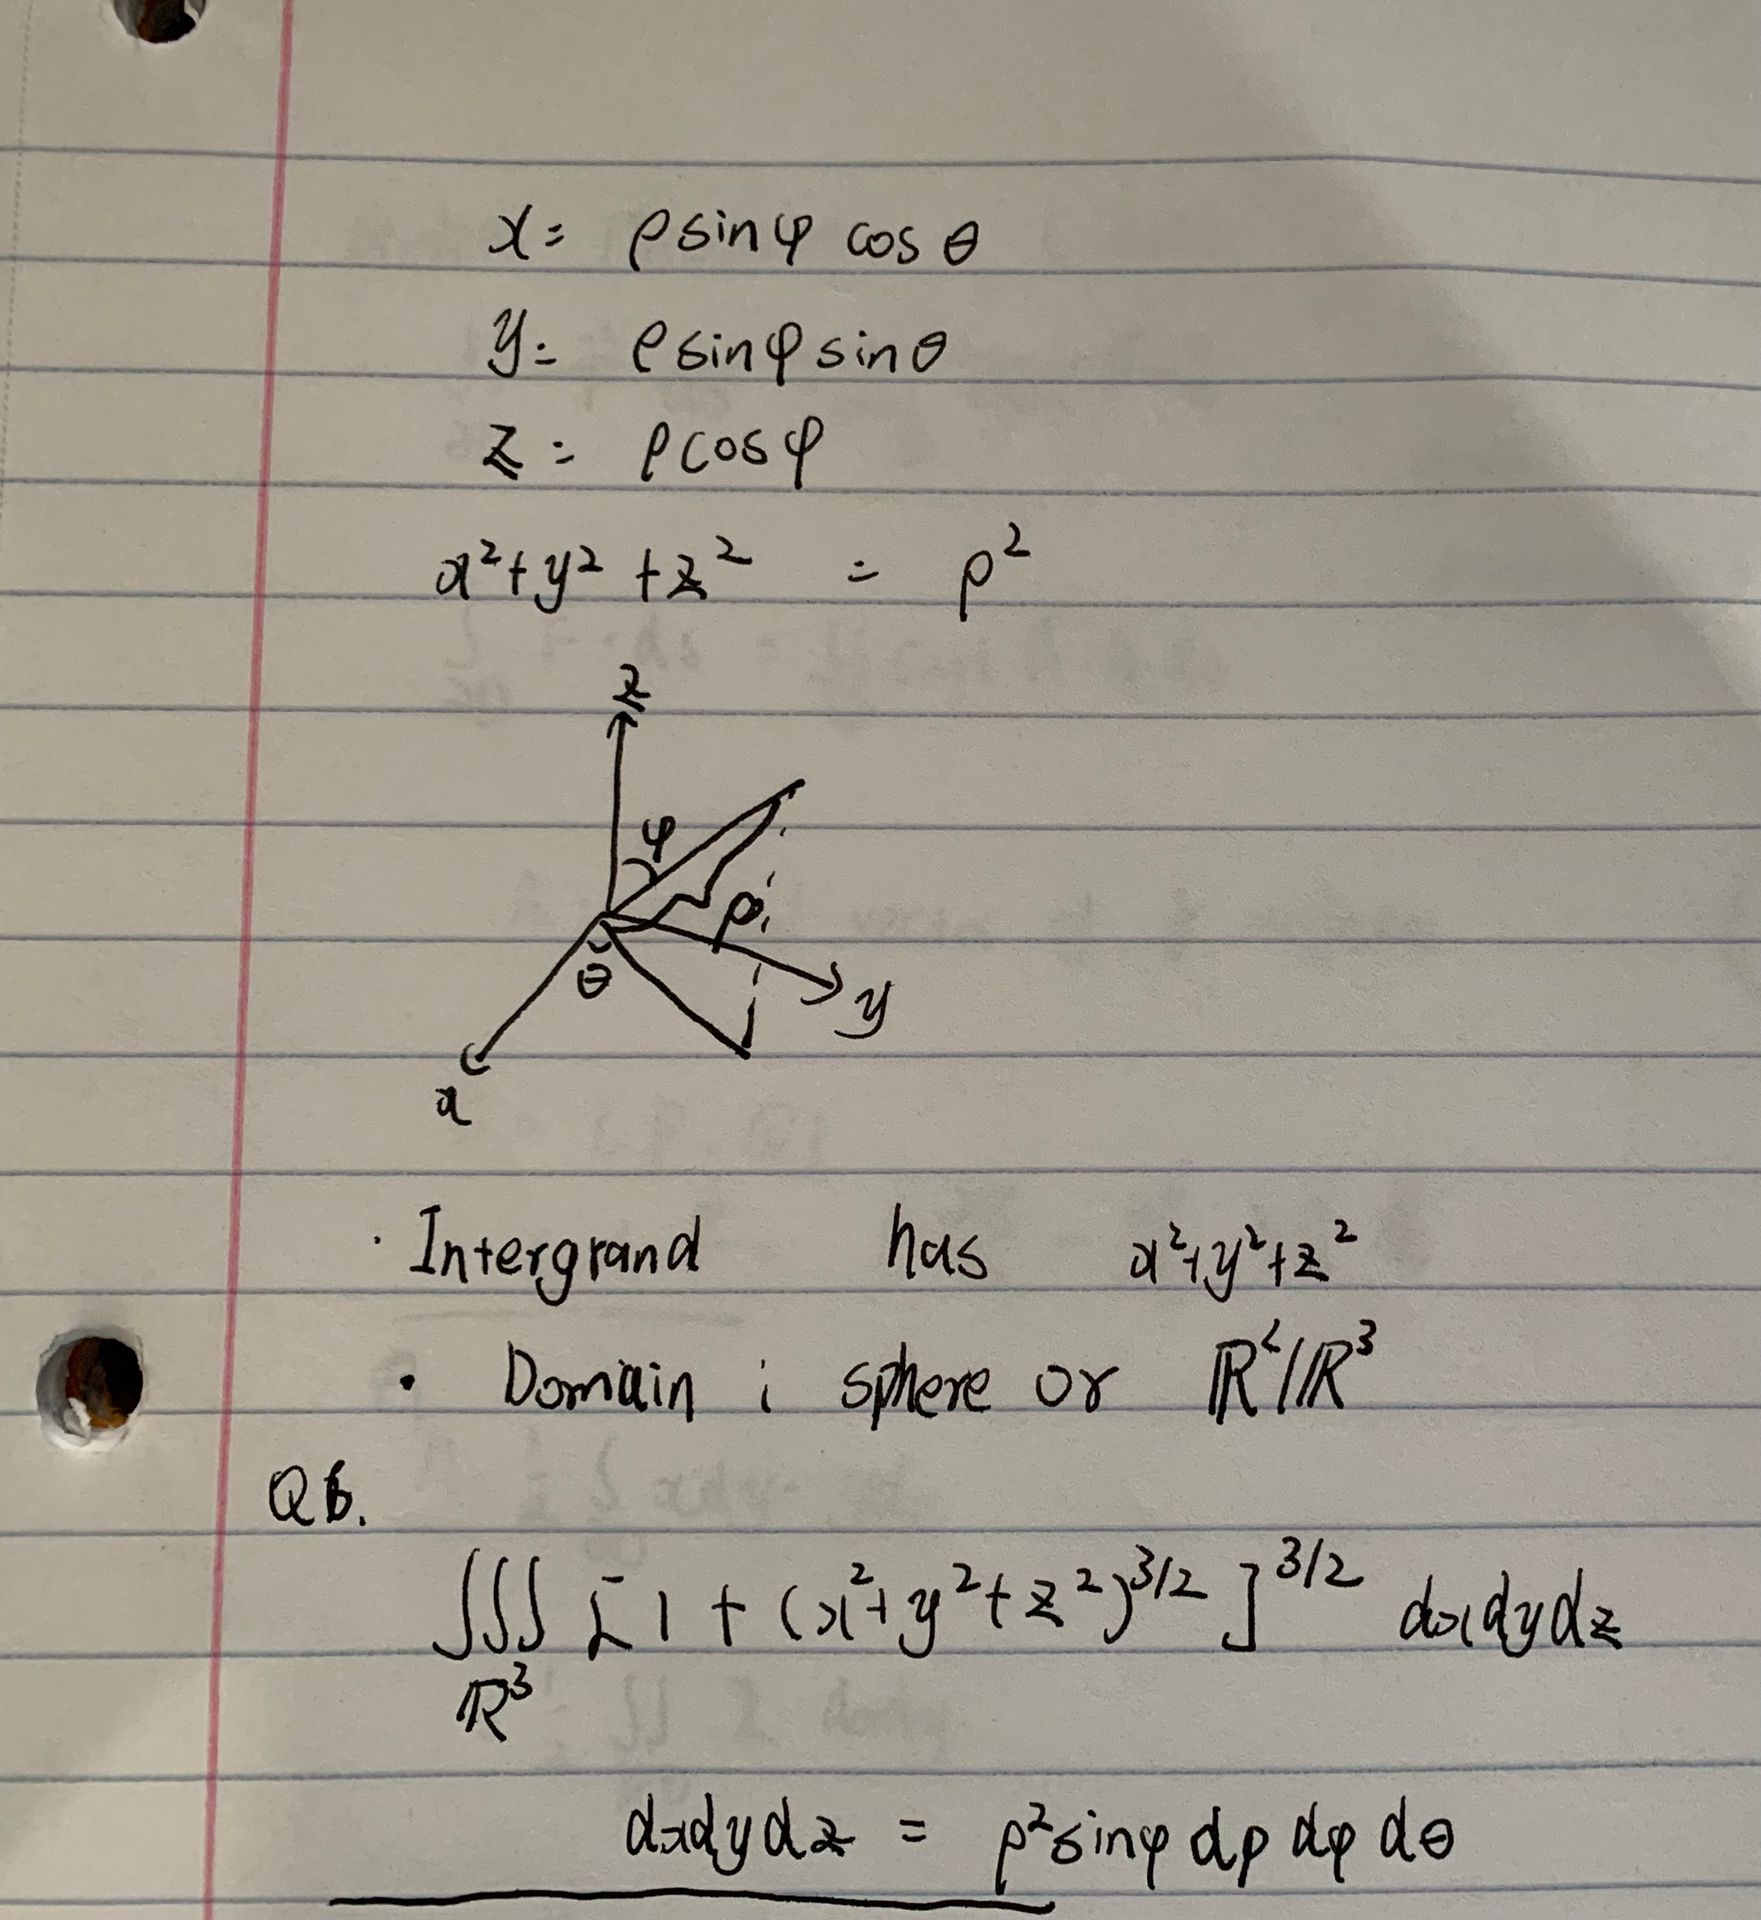 x = ρ sin φ cos θ
y = ρ sin φ sin θ
z = ρ cos φ
x² + y² + z² = ρ²
z
φ
ρ
θ
y
x
· Intergrand has x²+y²+z²
· Domain i sphere or ℝ²/ℝ³
Q6.
∭ [1 + (x²+y²+z²)^3/2]^3/2 dxdydz
ℝ³
dxdydz = ρ² sin φ dρ dφ dθ